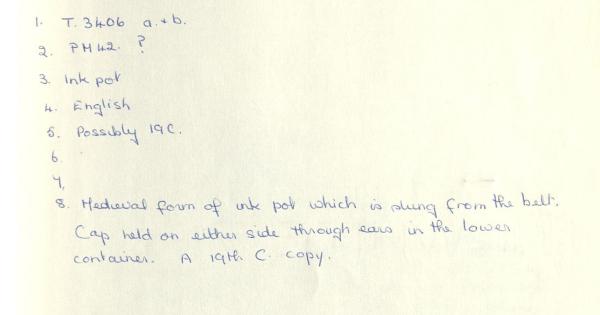 1. T. 3406 a. + b.
2. PM 42. ?
3. Ink pot
4. English
5. Possibly 19 C.
6.
7.
8. Medieval form of ink pot which is slung from the belt.
Cap held on either side through ears in the lower
container. A 19th C. copy.